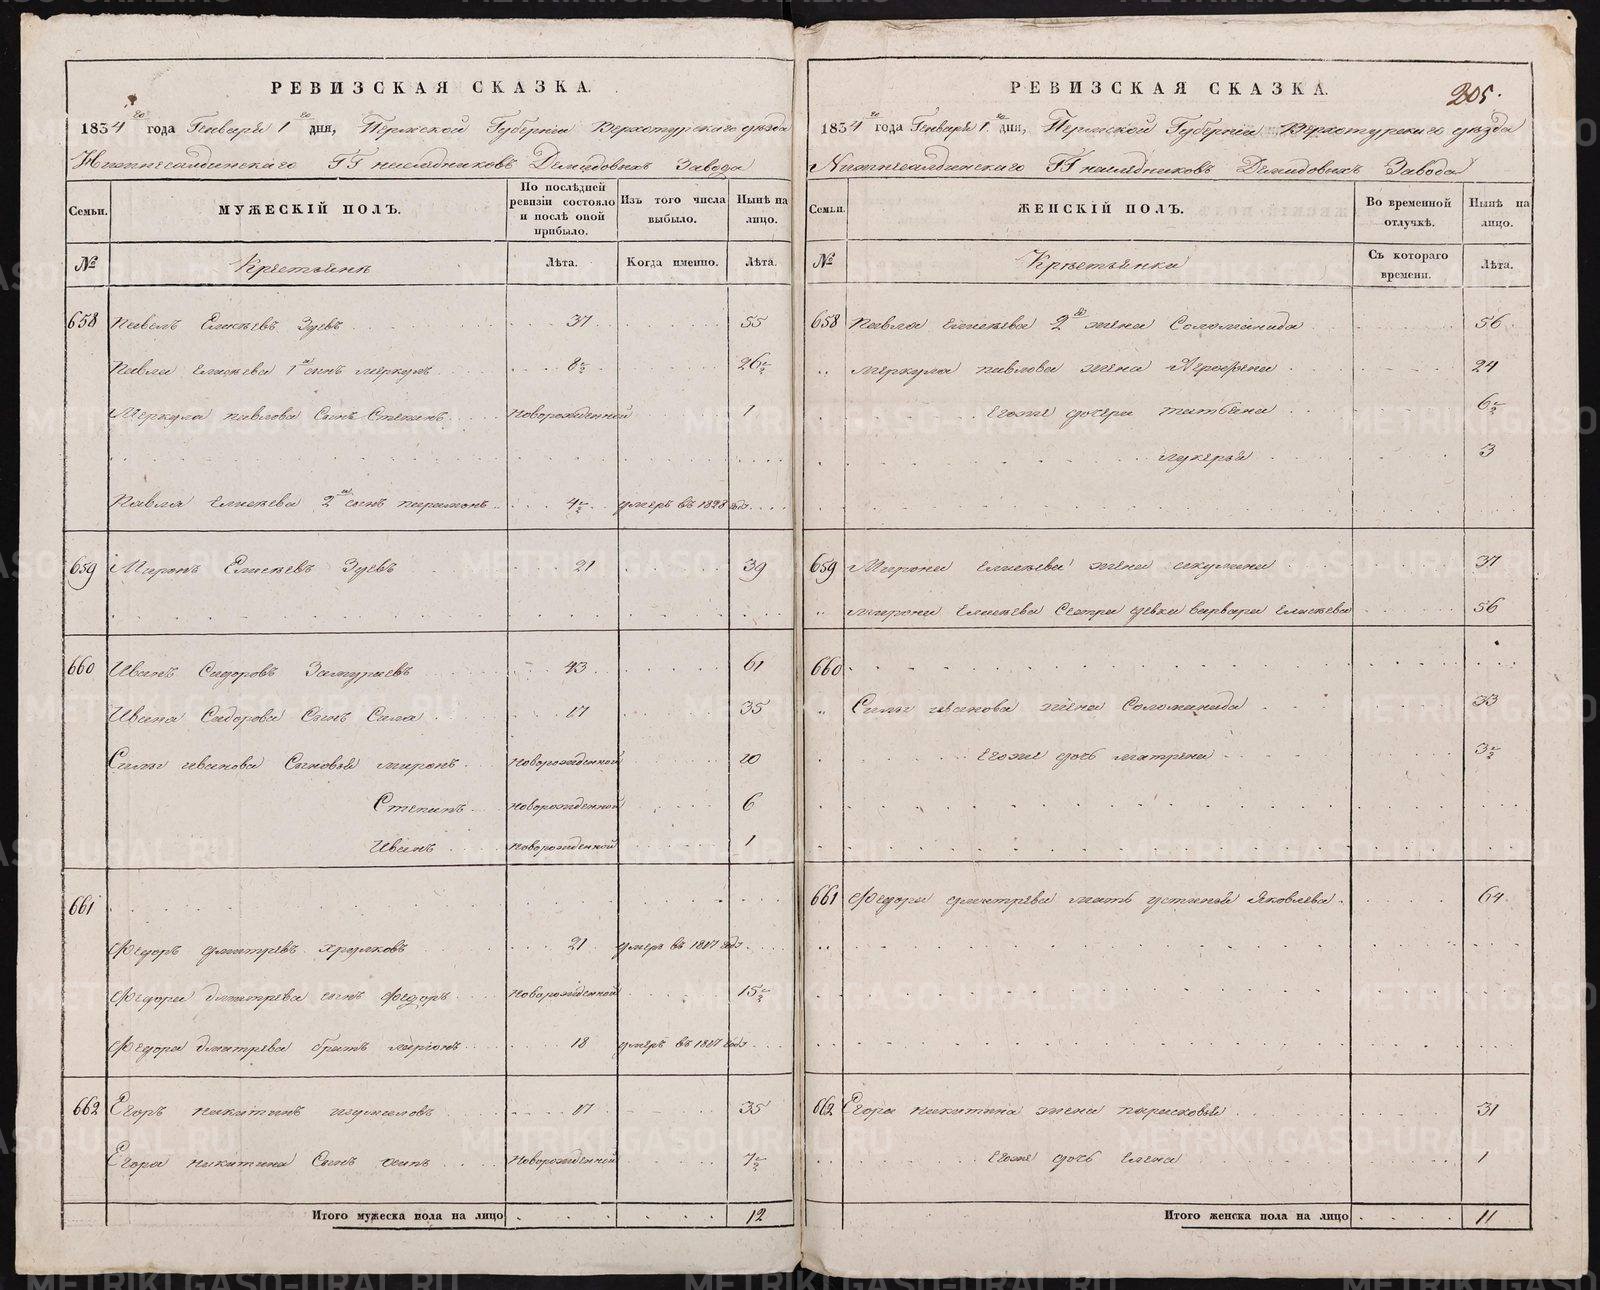 РЕВИЗСКАЯ СКАЗКА.
1834го года Генваря 1го дня, Пермской Губернiи Верхотурскаго уѣзда
Нижнесалдинскаго ГГ наслѣдниковъ Демидовыхъ Завода
Семьи. МУЖЕСКІЙ ПОЛЪ. По послѣдней ревизіи состояло и послѣ оной прибыло. Изъ того числа выбыло. Нынѣ на лицо.
№ Крестьянъ Лѣта. Когда именно. Лѣта.
658 Павелъ Елисѣевъ Зуевъ 37 55
Павла Елисѣева 1й сынъ Меркулъ 8½ 26½
Меркула Павлова сынъ Степанъ новорожденной 1
Павла Елисѣева 2й сынъ Парамонъ 4½ умеръ въ 1828 годѣ
659 Миронъ Елисѣевъ Зуевъ 21 39
660 Иванъ Сидоровъ Замураевъ 43 61
Ивана Сидорова Сынъ Сила 17 35
Силы Иванова Сыновья Миронъ новорожденной 10
Степанъ новорожденной 6
Иванъ новорожденной 1
661
Федоръ Дмитревъ Хрулковъ 21 умеръ въ 1817 годѣ
Федора Дмитрева сынъ Федоръ новорожденной 15½
Федора Дмитрева братъ Ларіонъ 18 умеръ въ 1817 годѣ
662 Егоръ Никитинъ 17 35
Егора Никитина Сынъ Осипъ новорожденной 7½
Итого мужеска пола на лицо 12
205.
РЕВИЗСКАЯ СКАЗКА.
1834го года Генваря 1го дня, Пермской Губернiи Верхотурскаго уѣзда
Нижнесалдинскаго ГГ наслѣдниковъ Демидовыхъ Завода
Семьи. ЖЕНСКІЙ ПОЛЪ. Во временной отлучкѣ. Нынѣ на лицо.
№ Крестьянки Съ котораго времени. Лѣта.
658 Павла Елисѣева 2я жена Соломанида 56
„ Меркула Павлова жена 24
Егоже дочери Татьяна 6½
Лукерья 3
659 Мирона Елисѣева жена Акулина 37
„ Мирона Елисѣева Сестра девка Варвара Елисѣева 56
660
„ Силы Иванова жена Соломанида 33
Егоже дочь Матрена 3½
661 Федора Дмитрева мать Устинья Яковлева 64
662 Егора Никитина жена Парасковья 31
Егоже дочь Елена 1
Итого женска пола на лицо 11
METRIKI.GASO-URAL.RU